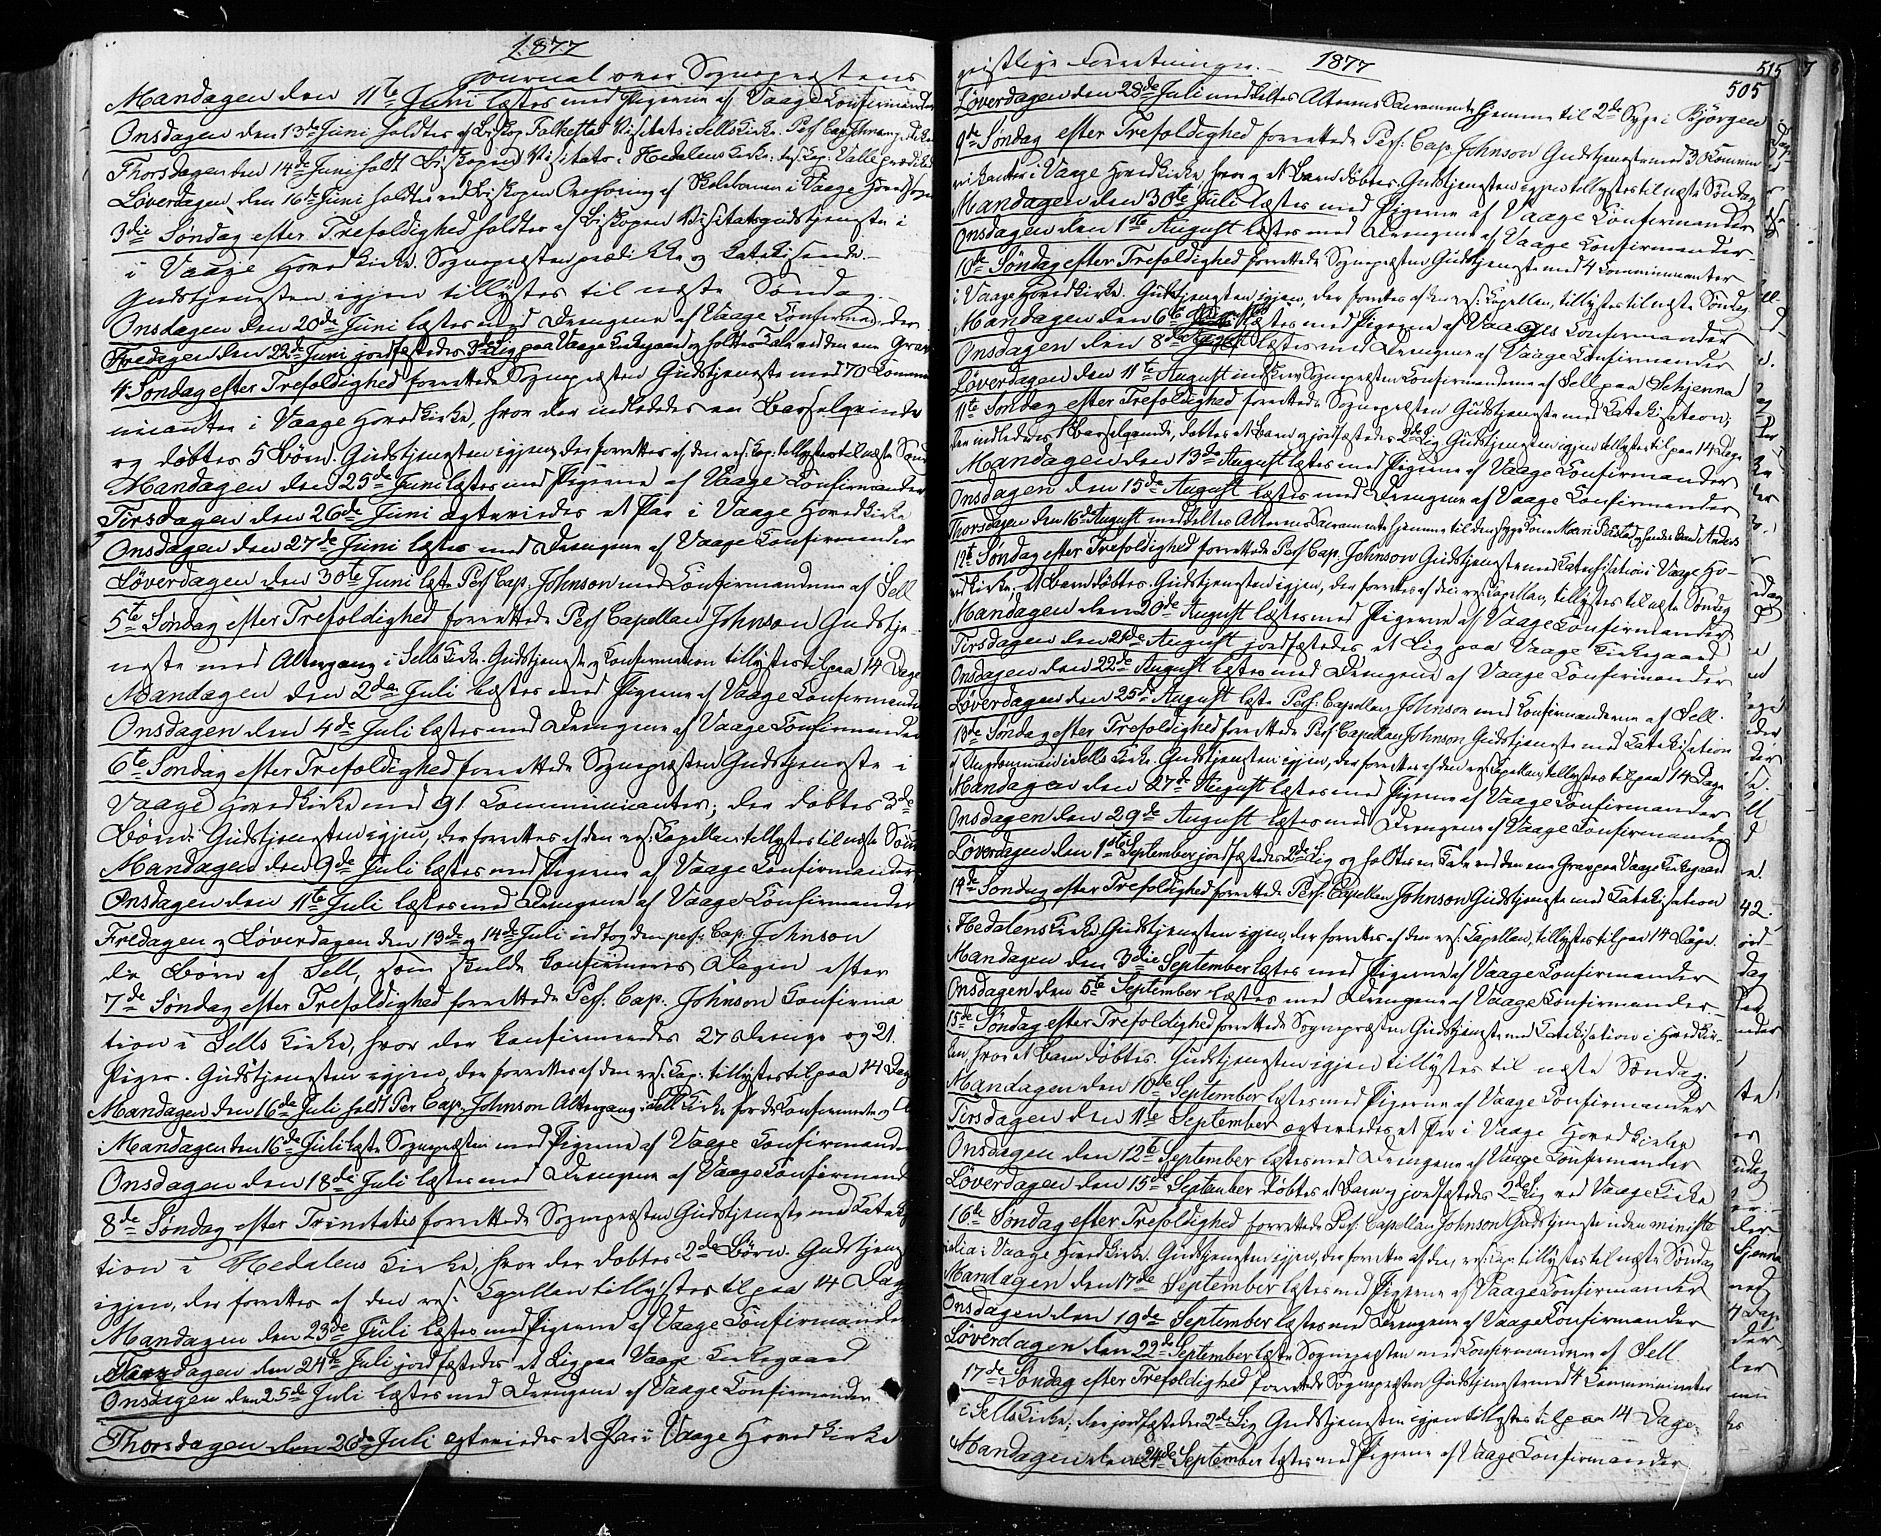 1877
Journal over Sognepræstens
Mandagen den 11te Juni læstes med Pigerne af Vaage Confirmander
Onsdagen den 13de Juni holdtes af Biskop Folkestad Visitats i Sells Kirke. Pers. Cap. Johnson
Thorsdagen den 14de Juni holdt Biskopen Visitats i Hedalens Kirke; res. Cap. Valle prædiked
Løverdagen den 16de Juni holdtes ved Biskopen Prøvning af Skolebørnene i Vaage Hovedsogn
3die Søndag efter Trefoldighed holdtes af Biskopen Visitatsgudstjeneste i
i Vaage Hovedkirke. Sognepræsten prædikede og katekiserede.
Gudstjenesten igjen tillystes til næste Søndag.
Onsdagen den 20de Juni læstes med Drengene af Vaage Confirmander
Fredagen den 22de Juni jordfæstedes 3de Lig paa Vaage Kirkegaard og holdtes Tale ved den ene Grav
4. Søndag efter Trefoldighed forrettede Sognepræsten Gudstjeneste med 70 Commu
nicanter i Vaage Hovedkirke, hvor der indlededes en Barselqvinde
og døbtes 5 Børn. Gudstjenesten igjen, der forrettes af den res. Cap. tillystes til næste Sønd
Mandagen den 25de Juni læstes med Pigerne af Vaage Confirmander
Tirsdagen den 26de Juni ægteviedes et Par i Vaage Hovedkirke
Onsdagen den 27de Juni læstes med Drengene af Vaage Confirmander
Løverdagen den 30te Juni læste Pers. Cap. Johnson med Confirmanderne af Sell
5te Søndag efter Trefoldighed forrettede Pers. Capellan Johnson Gudstje-
neste med Altergang i Sells Kirke. Gudstjeneste og Confirmation tillystes til paa 14 Dage
Mandagen den 2den Juli læstes med Pigerne af Vaage Confirmander
Onsdagen den 4de Juli læstes med Drengene af Vaage Confirmander
6te Søndag efter Trefoldighed forrettede Sognepræsten Gudstjeneste i
Vaage Hovedkirke med 91 Communicanter; der døbtes 3de
Børn. Gudstjenesten igjen, der forrettes af den res. Kapellan tillystes til næste Sønd
Mandagen den 9de Juli læstes med Pigerne af Vaage Confirmander
Onsdagen den 11te Juli læstes med Drengene af Vaage Confirmander
Fredagen og Løverdagen den 13de og 14de Juli indtog den pers. Cap. Johnson
de Børn af Sell, som skulde Konfirmeres Dagen efter
7de Søndag efter Trefoldighed forrettede Pers. Cap. Johnson Confirma
tion i Sells Kirke, hvor der konfirmeredes 27 Drenge og 21
Piger. Gudstjenesten igjen, der forrettes af den res. Cap. tillystes til paa 14 Dage
Mandagen den 16de Juli holdt Per. Cap. Johnson Altergang i Sells Kirke for de Confirmerede og
Mandagen den 16de Juli læste Sognepræsten med Pigerne af Vaage Confirmander
Onsdagen den 18de Juli læstes med Drengene af Vaage Confirmand
8de Søndag efter Trinitatis forrettede Sognepræsten Gudstjeneste med Kateki
tion i Hedalens Kirke, hvor der døbtes 2de Børn. Gudstjenes
igjen, der forrettes af den res. Capellan tillystes til paa 14 Dage
Mandagen den 23de Juli læstes med Pigerne af Vaage Confirmande
den 24de Juli jordfæstedes et Lig paa Vaage Kirkegaard
Onsdagen den 25de Juli læstes med Drengene af Vaage Confirmander
Thorsdagen den 26de Juli ægteviedes et Par i Vaage Hovedkirke
geistlige Forretninger. 1877
505
515
Løverdagen den 28de Juli meddeltes Alterens Sacramente hjemme til 2de Syge i Bjørgen
9de Søndag efter Trefoldighed forrettede Pers. Cap. Johnson Gudstjeneste med 30 Commu
nikanter i Vaage Hovedkirke, hvor og et Barn døbtes. Gudstjenesten igjen tillystes til næste Søndag
Mandagen den 30te Juli læstes med Pigerne af Vaage Confirmander
Onsdagen den 1ste August læstes med Drengene af Vaage Confirmander
10de Søndag efter Trefoldighed forrettede Sognepræsten Gudstjeneste med 4 Communicanter
i Vaage Hovedkirke. Gudstjenesten igjen, der forrettes af den res. Capellan, tillystes til næste Søndag
Mandagen den 6te August læstes med Pigerne af Vaages Confirmander
Onsdagen den 8de August læstes med Drengene af Vaage Confirmander
Løverdagen den 11te August indskrev Sognepræsten Confirmanderne af Sell paa Selsjenna
11te Søndag efter Trefoldighed forrettede Sognepræsten Gudstjeneste med Katekisation;
der indlededes 1 Barselqvinde, døbtes et Barn og jordfæstedes 2de Lig. Gudstjenesten igjen tillystes til paa 14 Dage
Mandagen den 13de August læstes med Pigerne af Vaage Confirmander
Onsdagen den 15de August læstes med Drengene af Vaage Confirmander
Thorsdagen den 16de August meddeltes Alterens Sacramente hjemme til den syge Kone Mari og hendes Mand Anders
12te Søndag efter Trefoldighed forrettede Pers. Cap. Johnson Gudstjeneste med Katekisation i Vaage Ho-
vedkirke; et Barn døbtes. Gudstjenesten igjen, der forrettes af den res. Capellan, tillystes til næste Søndag
Mandagen den 20de August læstes med Pigerne af Vaage Confirmander
Tirsdagen den 21de August jordfæstedes et Lig paa Vaage Kirkegaard
Onsdagen den 22de August læstes med Drengene af Vaage Confirmander
Løverdagen den 25de August læste Pers. Capellan Johnson med Confirmanderne af Sell.
13de Søndag efter Trefoldighed forrettede Pers. Capellan Johnson Gudstjeneste med Katekisation
af Ungdommen i Sells Kirke. Gudstjenesten igjen, der forrettes af den res. Capellan, tillystes til paa 14 Dage
Mandagen den 27de August læstes med Pigerne af Vaage Confirmander
Onsdagen den 29de August læstes med Drengene af Vaage Confirmander
Løverdagen den 1ste September jordfæstedes 2de Lig og holdtes en Tale ved den ene Grav paa Vaage Kirkegaard
14de Søndag efter Trefoldighed forrettede Pers. Capellan Johnson Gudstjeneste med Katekisation
i Hedalens Kirke. Gudstjenesten igjen, der forrettes af den res. Capellan, tillystes til paa 14 Dage.
Mandagen den 3die September læstes med Pigerne af Vaage Confirmander
Onsdagen den 5te September læstes med Drengene af Vaage Confirmander
15de Søndag efter Trefoldighed forrettede Sognepræsten Gudstjeneste med Katekisation i Hovedkir-
ken, hvor et Barn døbtes. Gudstjenesten igjen tillystes til næste Søndag.
Mandagen den 10de September læstes med Pigerne af Vaage Confirmander
Tirsdagen den 11te September ægteviedes et Par i Vaage Hovedkirke
Onsdagen den 12te September læstes med Drengene af Vaage Confirmander
Løverdagen den 15de September døbtes et Barn og jordfæstedes 2de Lig ved Vaage Kirke
16de Søndag efter Trefoldighed forrettede Pers. Capellan Johnson Gudstjeneste uden ministe
rialia i Vaage Hovedkirke. Gudstjenesten igjen, der forrettes af den res. Cap. tillystes til næste Søndag
Mandagen den 17de September læstes med Pigerne af Vaage Confirmander
Onsdagen den 19de September læstes med Drengene af Vaage Confirmander
Løverdagen den 22de September læste Sognepræsten med Confirmanderne af Sell
17de Søndag efter Trefoldighed forrettede Sognepræsten Gudstjeneste med 4 Communicanter
i Sells Kirke; der jordfæstedes 2de Lig. Gudstjenesten igjen tillystes til paa 14 Dage.
Mandagen den 24de September læstes med Pigerne af Vaage Confirmander